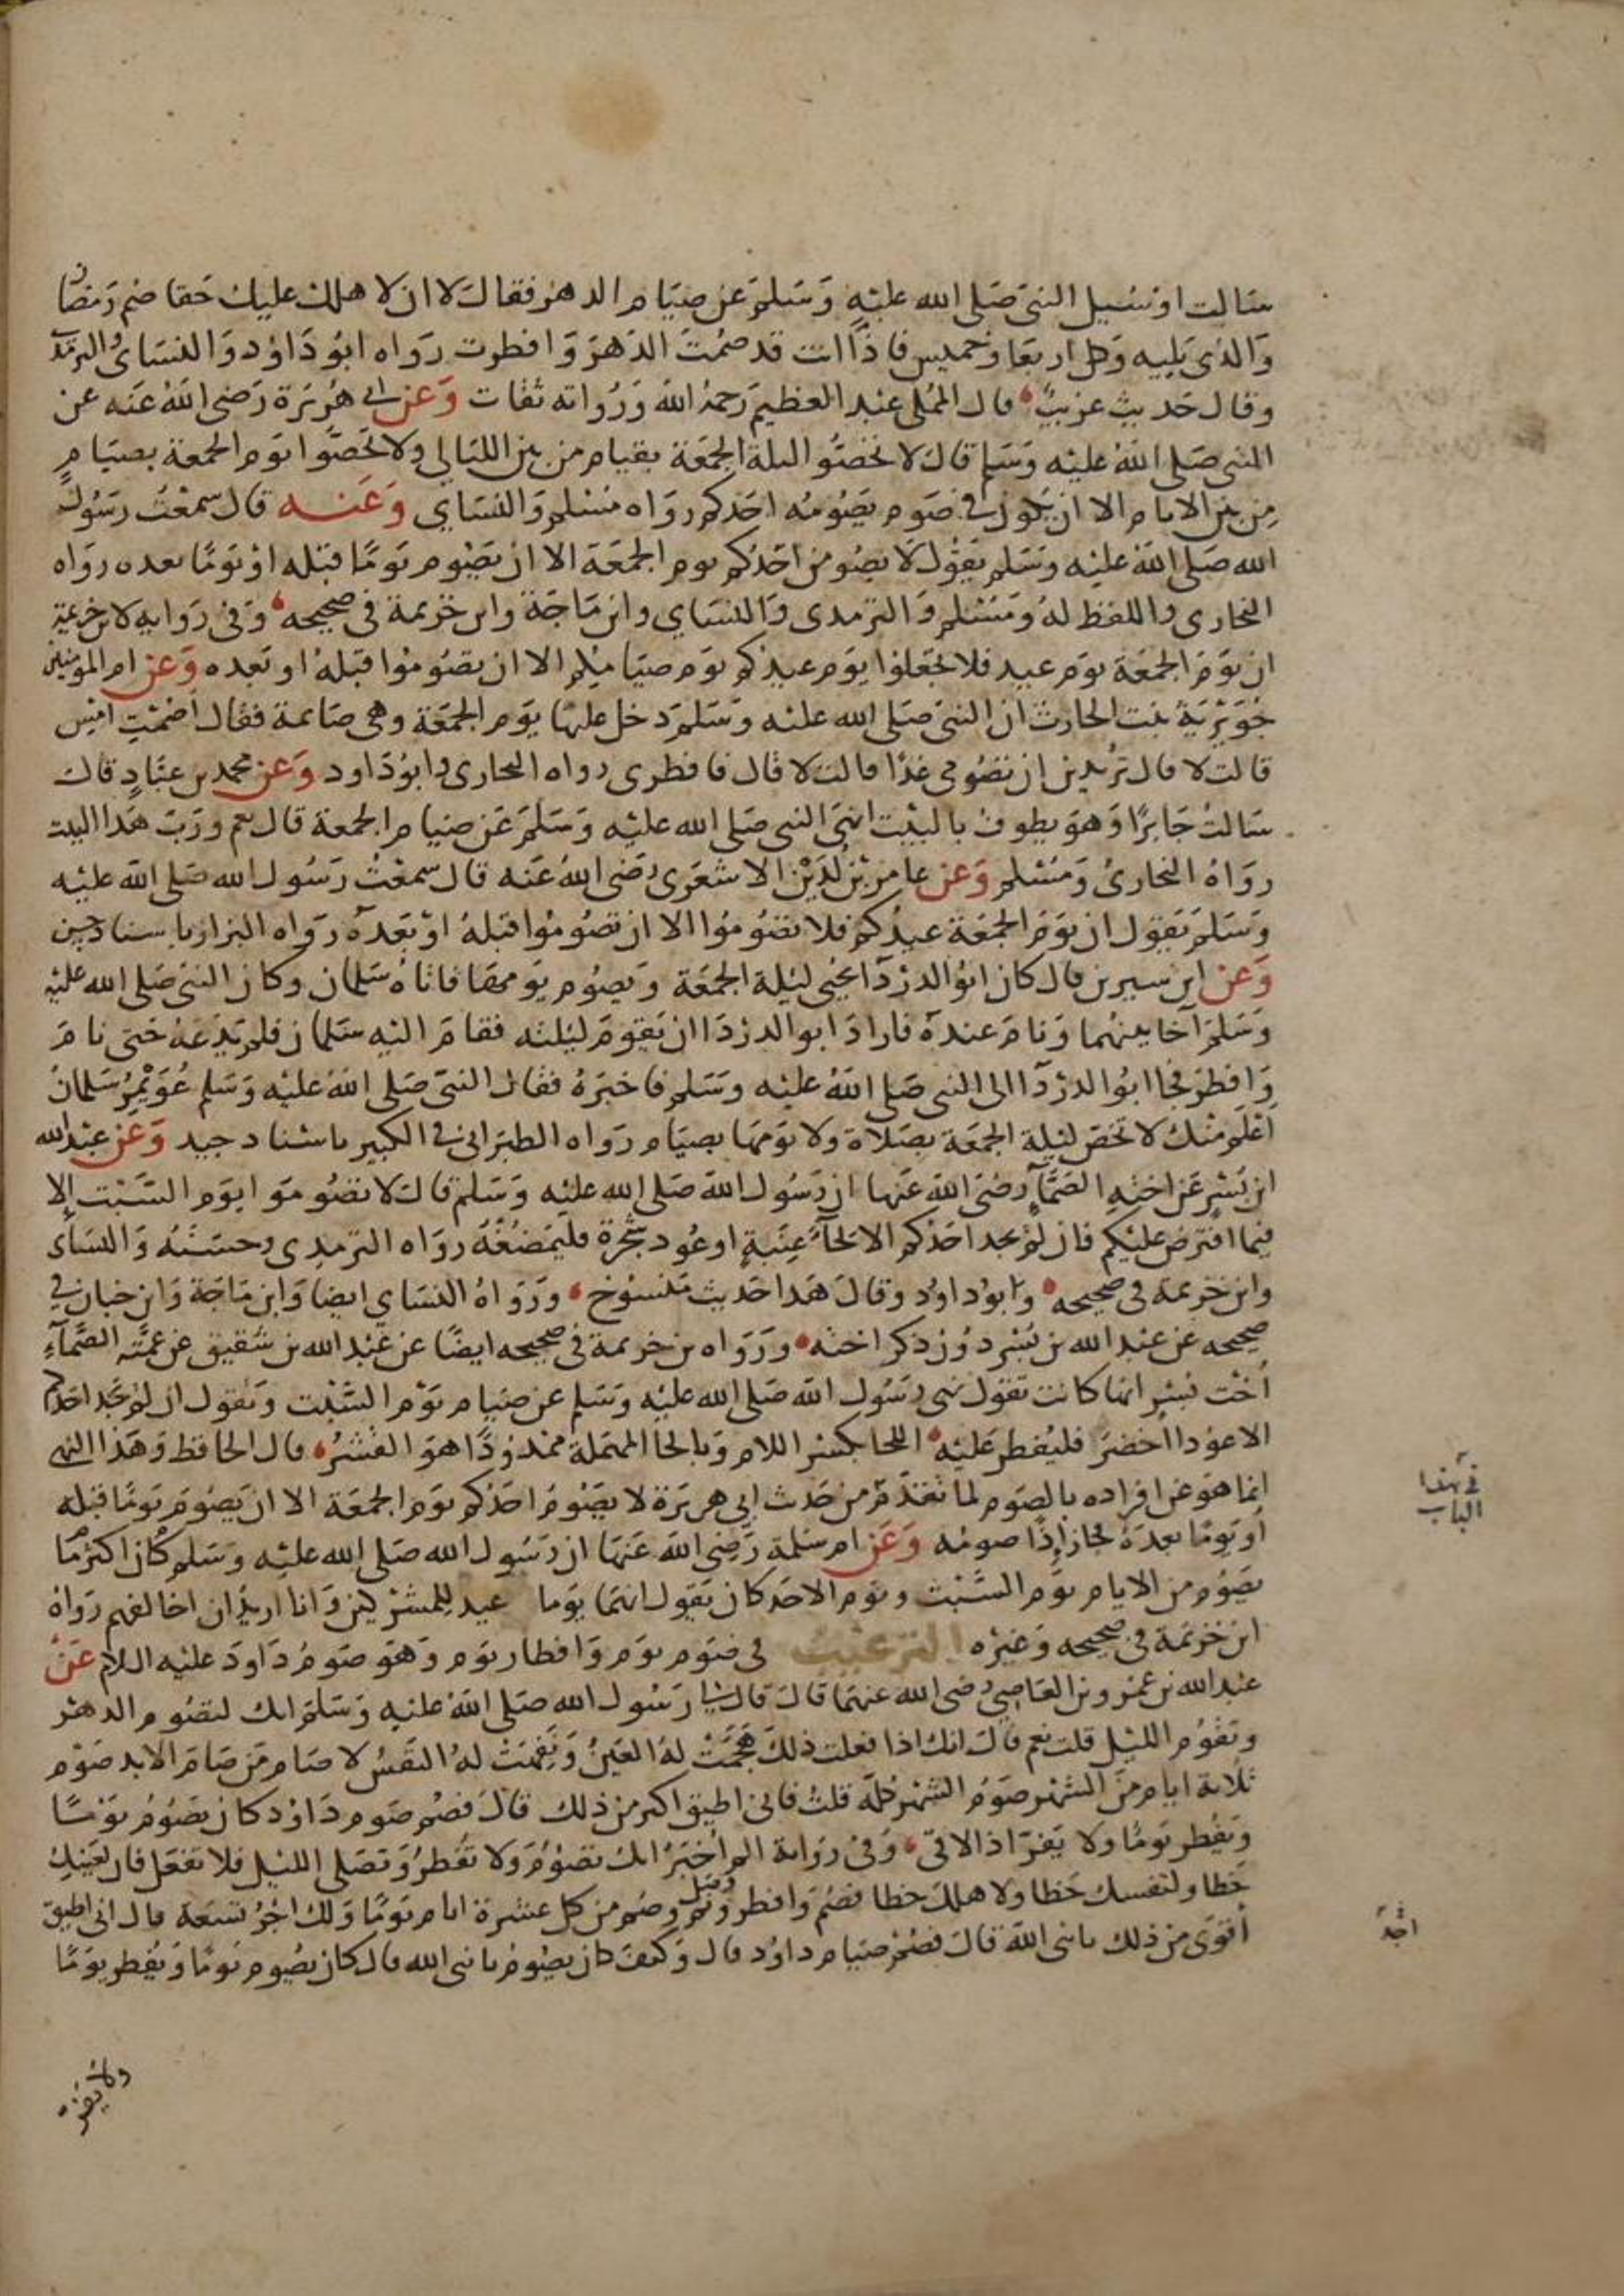 سالت او سيل النبى صلى الله عليه وسلم عن صيام الدهر فقال لا ان لاهلك عليك حقا صم رمضان
والذى يليه وكل اربعا وخميس فاذا انت قد صمت الدهر وافطرت رواه ابو داود والنساى والترمذى
وقال حديث غريب قال المملى عبد العظيم رحمه الله ورواته ثقات وعن ابى هريرة رضى الله عنه عن
النبى صلى الله عليه وسلم قال لا تخصوا ليلة الجمعة بقيام من بين الليالى ولا تخصوا يوم الجمعة بصيام
من بين الايام الا ان يكون فى صوم يصومه احدكم رواه مسلم والنساي وعنه قال سمعت رسول
الله صلى الله عليه وسلم يقول لا يصومن احدكم يوم الجمعة الا ان يصوم يوما قبله او يوما بعده رواه
البخارى واللفظ له ومسلم والترمدى والنساي وابن ماجة وابن خزيمة فى صحيحه وفى رواية لابن خزيمة
ان يوم الجمعة يوم عيد فلا تجعلوا يوم عيدكم يوم صيامكم الا ان تصوموا قبله او بعده وعن ام المومنين
جويرية بنت الحارث ان النبى صلى الله عليه وسلم دخل عليها يوم الجمعة وهى صايمة فقال اصمت امس
قالت لا قال تريدين ان تصومى غدا قالت لا قال فافطرى رواه البخارى وابو داود وعن محمد بن عباد قال
سالت جابرا وهو يطوف بالبيت انهى النبى صلى الله عليه وسلم عن صيام الجمعة قال نعم ورب هذا البيت
رواه البخارى ومسلم وعن عامر بن لدين الاشعرى رضى الله عنه قال سمعت رسول الله صلى الله عليه
وسلم يقول ان يوم الجمعة عيدكم فلا تصوموا الا ان تصوموا قبله او بعده رواه البزار باسناد حسن
وعن ابن سيرين قال كان ابو الدردآ يحيى ليلة الجمعة ويصوم يومها فاتاه سلمان وكان النبى صلى الله عليه
وسلم آخا بينهما ونام عنده فاراد ابو الدردا ان يقوم ليلته فقام اليه سلمان فلم يدعه حتى نام
وافطر فجا ابو الدردآ الى النبى صلى الله عليه وسلم فاخبره فقال النبى صلى الله عليه وسلم عويمر سلمان
اعلم منك لا تخص ليلة الجمعة بصلاة ولا يومها بصيام رواه الطبرانى فى الكبير باسناد جيد وعن عبد الله
ابن بسر عن اخته الصمآ رضى الله عنها ان رسول الله صلى الله عليه وسلم قال لا تصوموا يوم السبت الا
فيما افترض عليكم فان لم يجد احدكم الا لحآ عنبة او عود شجرة فليمضغه رواه الترمدى وحسنه والنساى
وابن خزيمة فى صحيحه وابو داود وقال هذا حديث منسوخ ورواه النساي ايضا وابن ماجة وابن حبان فى
صحيحه عن عبد الله بن بسر دون ذكر اخته ورواه بن خزيمة فى صحيحه ايضا عن عبد الله بن شقيق عن عمته الصمآء
اخت بسر انها كانت تقول نهى رسول الله صلى الله عليه وسلم عن صيام يوم السبت وتقول ان لم يجد احدكم
الا عودا اخضر فليفطر عليه اللحا بكسر اللام وبالحا المهملة ممدودا هو القشر قال الحافظ وهذا النهى
انما هو عن افراده بالصوم لما تقدم من حدث ابى هريرة لا يصوم احدكم يوم الجمعة الا ان يصوم يوما قبله
او يوما بعده فجاز اذا صومه وعن ام سلمة رضى الله عنها ان رسول الله صلى الله عليه وسلم كان اكثر ما
يصوم من الايام يوم السبت ويوم الاحد كان يقول انهما يوما عيد للمشركين وانا اريد ان اخالفهم رواه
ابن خزيمة فى صحيحه وغيره الترغيب فى صوم يوم وافطار يوم وهو صوم داود عليه السلام عن
عبد الله بن عمرو بن العاصي رضى الله عنهما قال قال لى رسول الله صلى الله عليه وسلم انك لتصوم الدهر
وتقوم الليل قلت نعم قال انك اذا فعلت ذلك هجمت له العين ونفهت له النفس لا صام من صام الابد صوم
ثلاثة ايام من الشهر صوم الشهر كله قلت فانى اطيق اكثر من ذلك قال فصم صوم داود كان يصوم يوما
ويفطر يوما ولا يفر اذا لاقى وفى رواية الم اخبر انك تصوم ولا تفطر وتصلى الليل فلا تفعل فان لعينك
حظا ولنفسك حظا ولاهلك حظا فصم وافطر وصل ونم وصم من كل عشرة ايام يوما ولك اجر تسعة قال انى اطيق
اقوى من ذلك يا نبى الله قال فصم صيام داود قال وكيف كان يصوم يا نبى الله قال كان يصوم يوما ويفطر يوما
فى هذا
الباب
ولا يفر